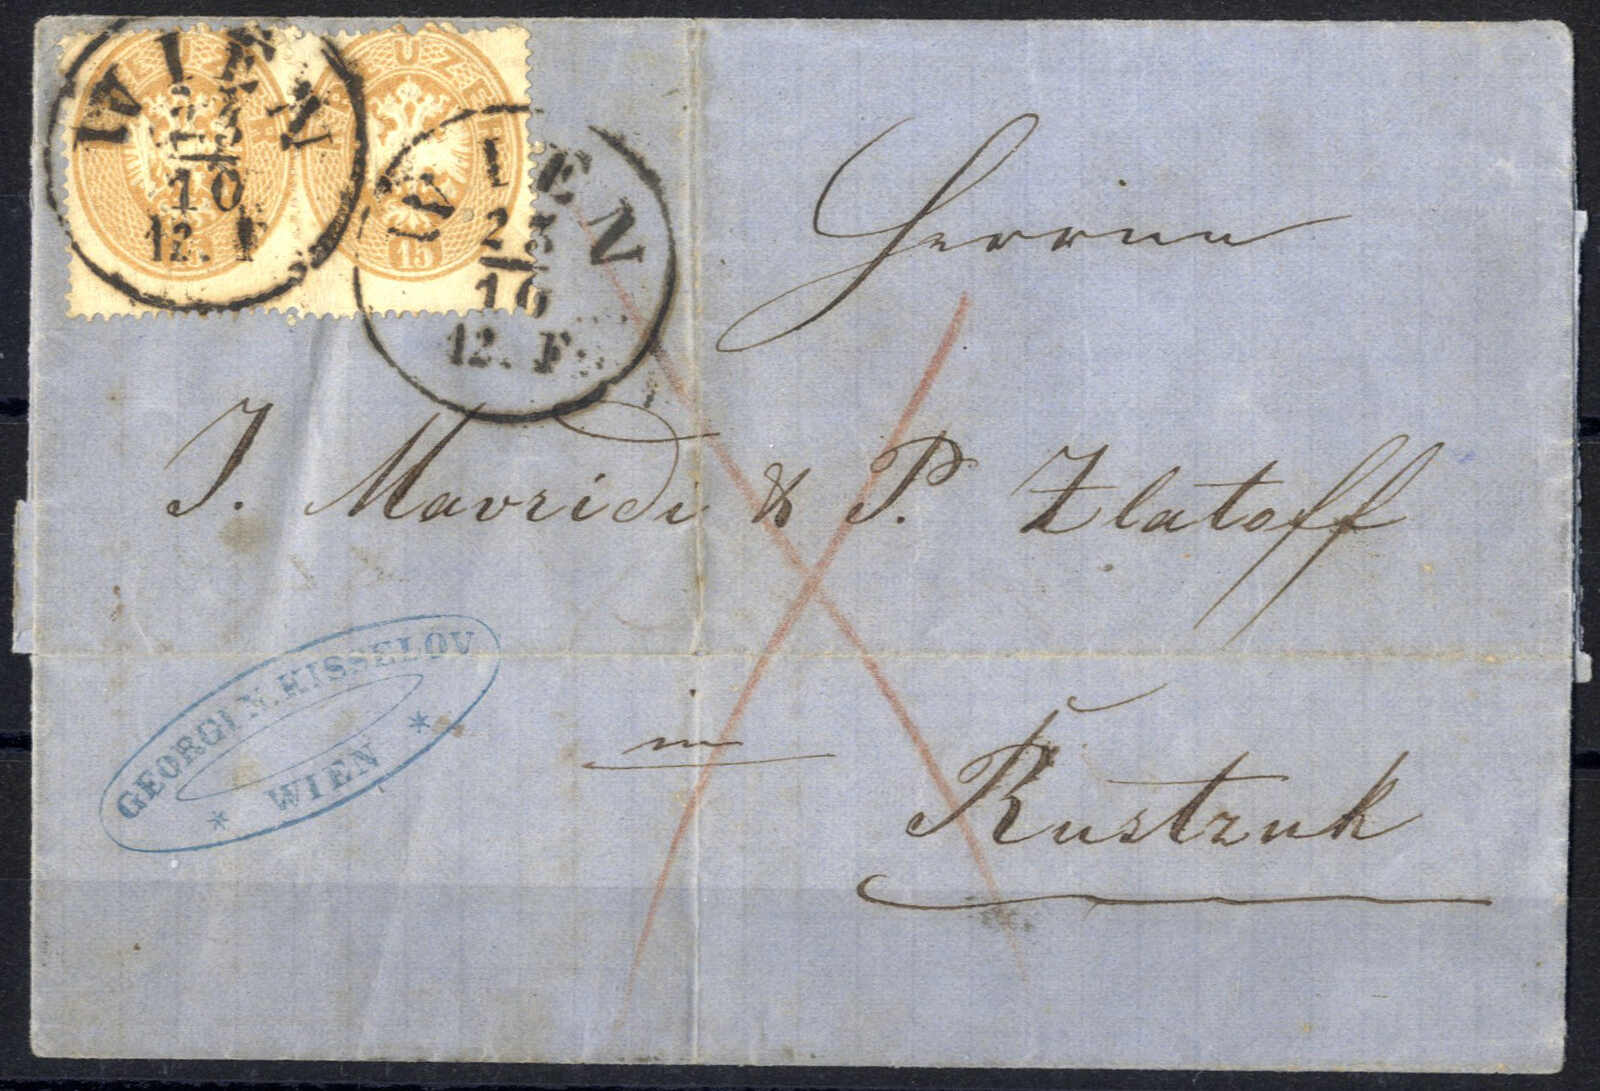 WIEN
23
10
12. F
KREUZER
15
WIEN
23
10
12. F.
Herren
J. Mavridi & P. Zlatoff
in
Rustzuk
GEORGI N. HISSELOV
* WIEN *